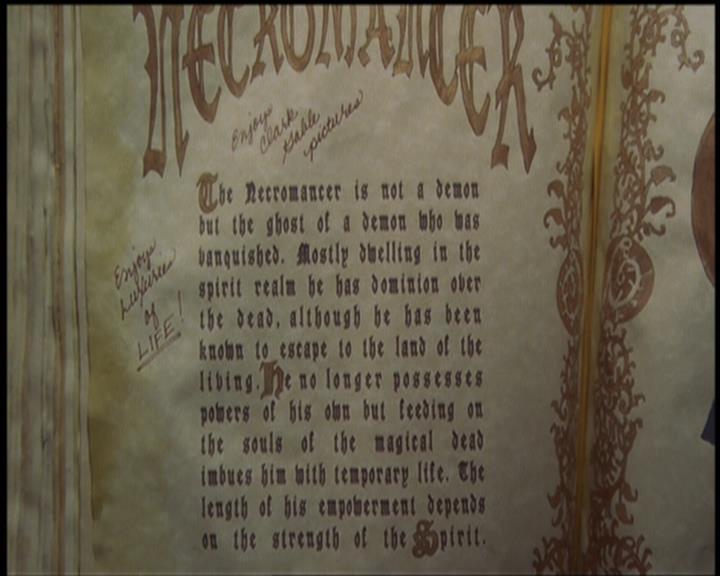 NECROMANCER
Enjoys
Clark
Gable
pictures
The Necromancer is not a demon
but the ghost of a demon who was
vanquished. Mostly dwelling in the
spirit realm he has dominion over
the dead, although he has been
known to escape to the land of the
living. He no longer possesses
powers of his own but feeding on
the souls of the magical dead
imbues him with temporary life. The
length of his empowerment depends
on the strength of the Spirit.
Enjoys
Luxuries
of
LIFE!